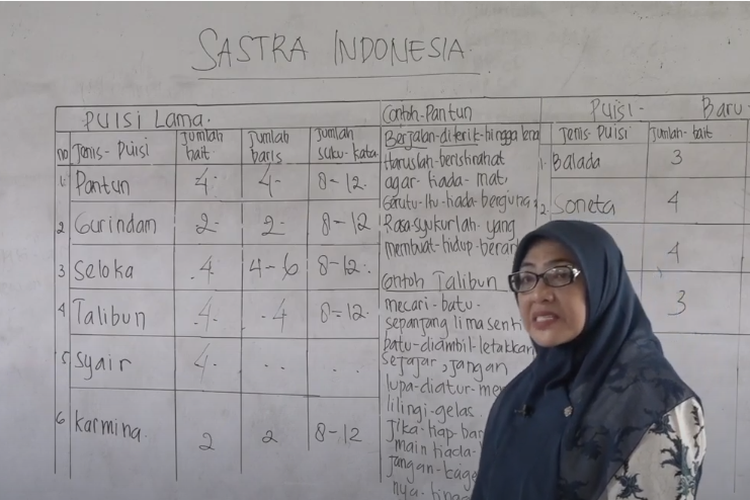 SASTRA INDONESIA
PUISI Lama.
no Jenis-Puisi Jumlah bait Jumlah baris Jumlah suku-kata
1. Pantun 4- 4- 8-12.
2 Gurindan 2- 2- 8-12
3 Seloka .4 4-6 8-12.
4 Talibun .4. .4 8-12.
5 Syair 4- .. ...
6 Karmina. 2 2 8-12
Contoh-Pantun
Berjalan-diterit-hingga
Haruslah-beristirahat
agar-tiada-mat,
Gerutu-itu-tiada-berguna,
Rasa-syukurlah-yang
membuat-hidup-berar
Contoh Talibun
mecari-batu-
sepanjang lima senti
batu-diambil-letakkan
sejajar, jangan
lupa-diatur-me
lilingi-gelas.
Jika-tiap-bar
main tiada-
jangan-bage
nya-hingg
PUISI- Baru
Jenis-Puisi Jumlah-bait
1. Balada 3
2. Soneta 4
4
3